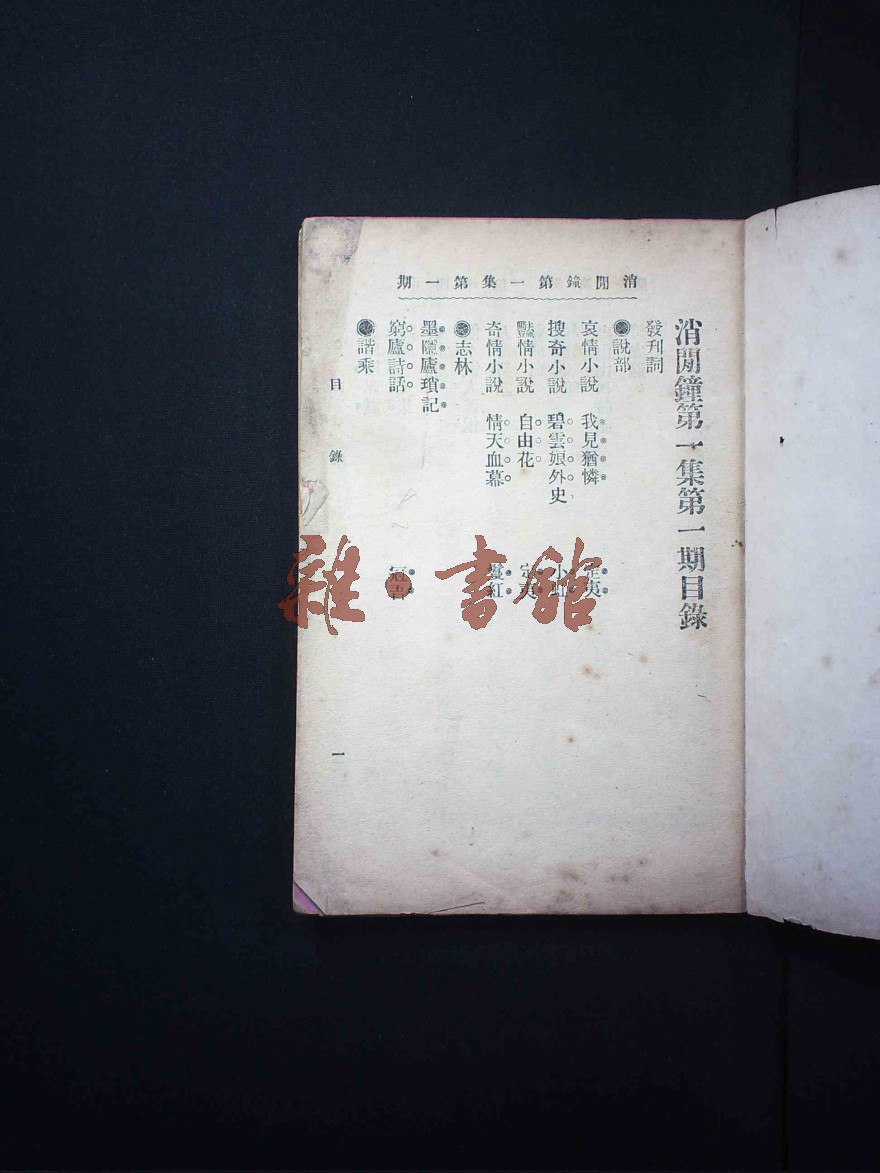 消閒鐘第一集第一期目錄
發刊詞
說部
哀情小說 我見猶憐 定夷
搜奇小說 碧雲娘外史 小虹
豔情小說 自由花 定夷
奇情小說 情天血幕 蘷紅
志林
墨隱廬瑣記
窮廬詩話 冠吾
諧乘
消閒鐘第一集第一期
目錄
一
雜·書館